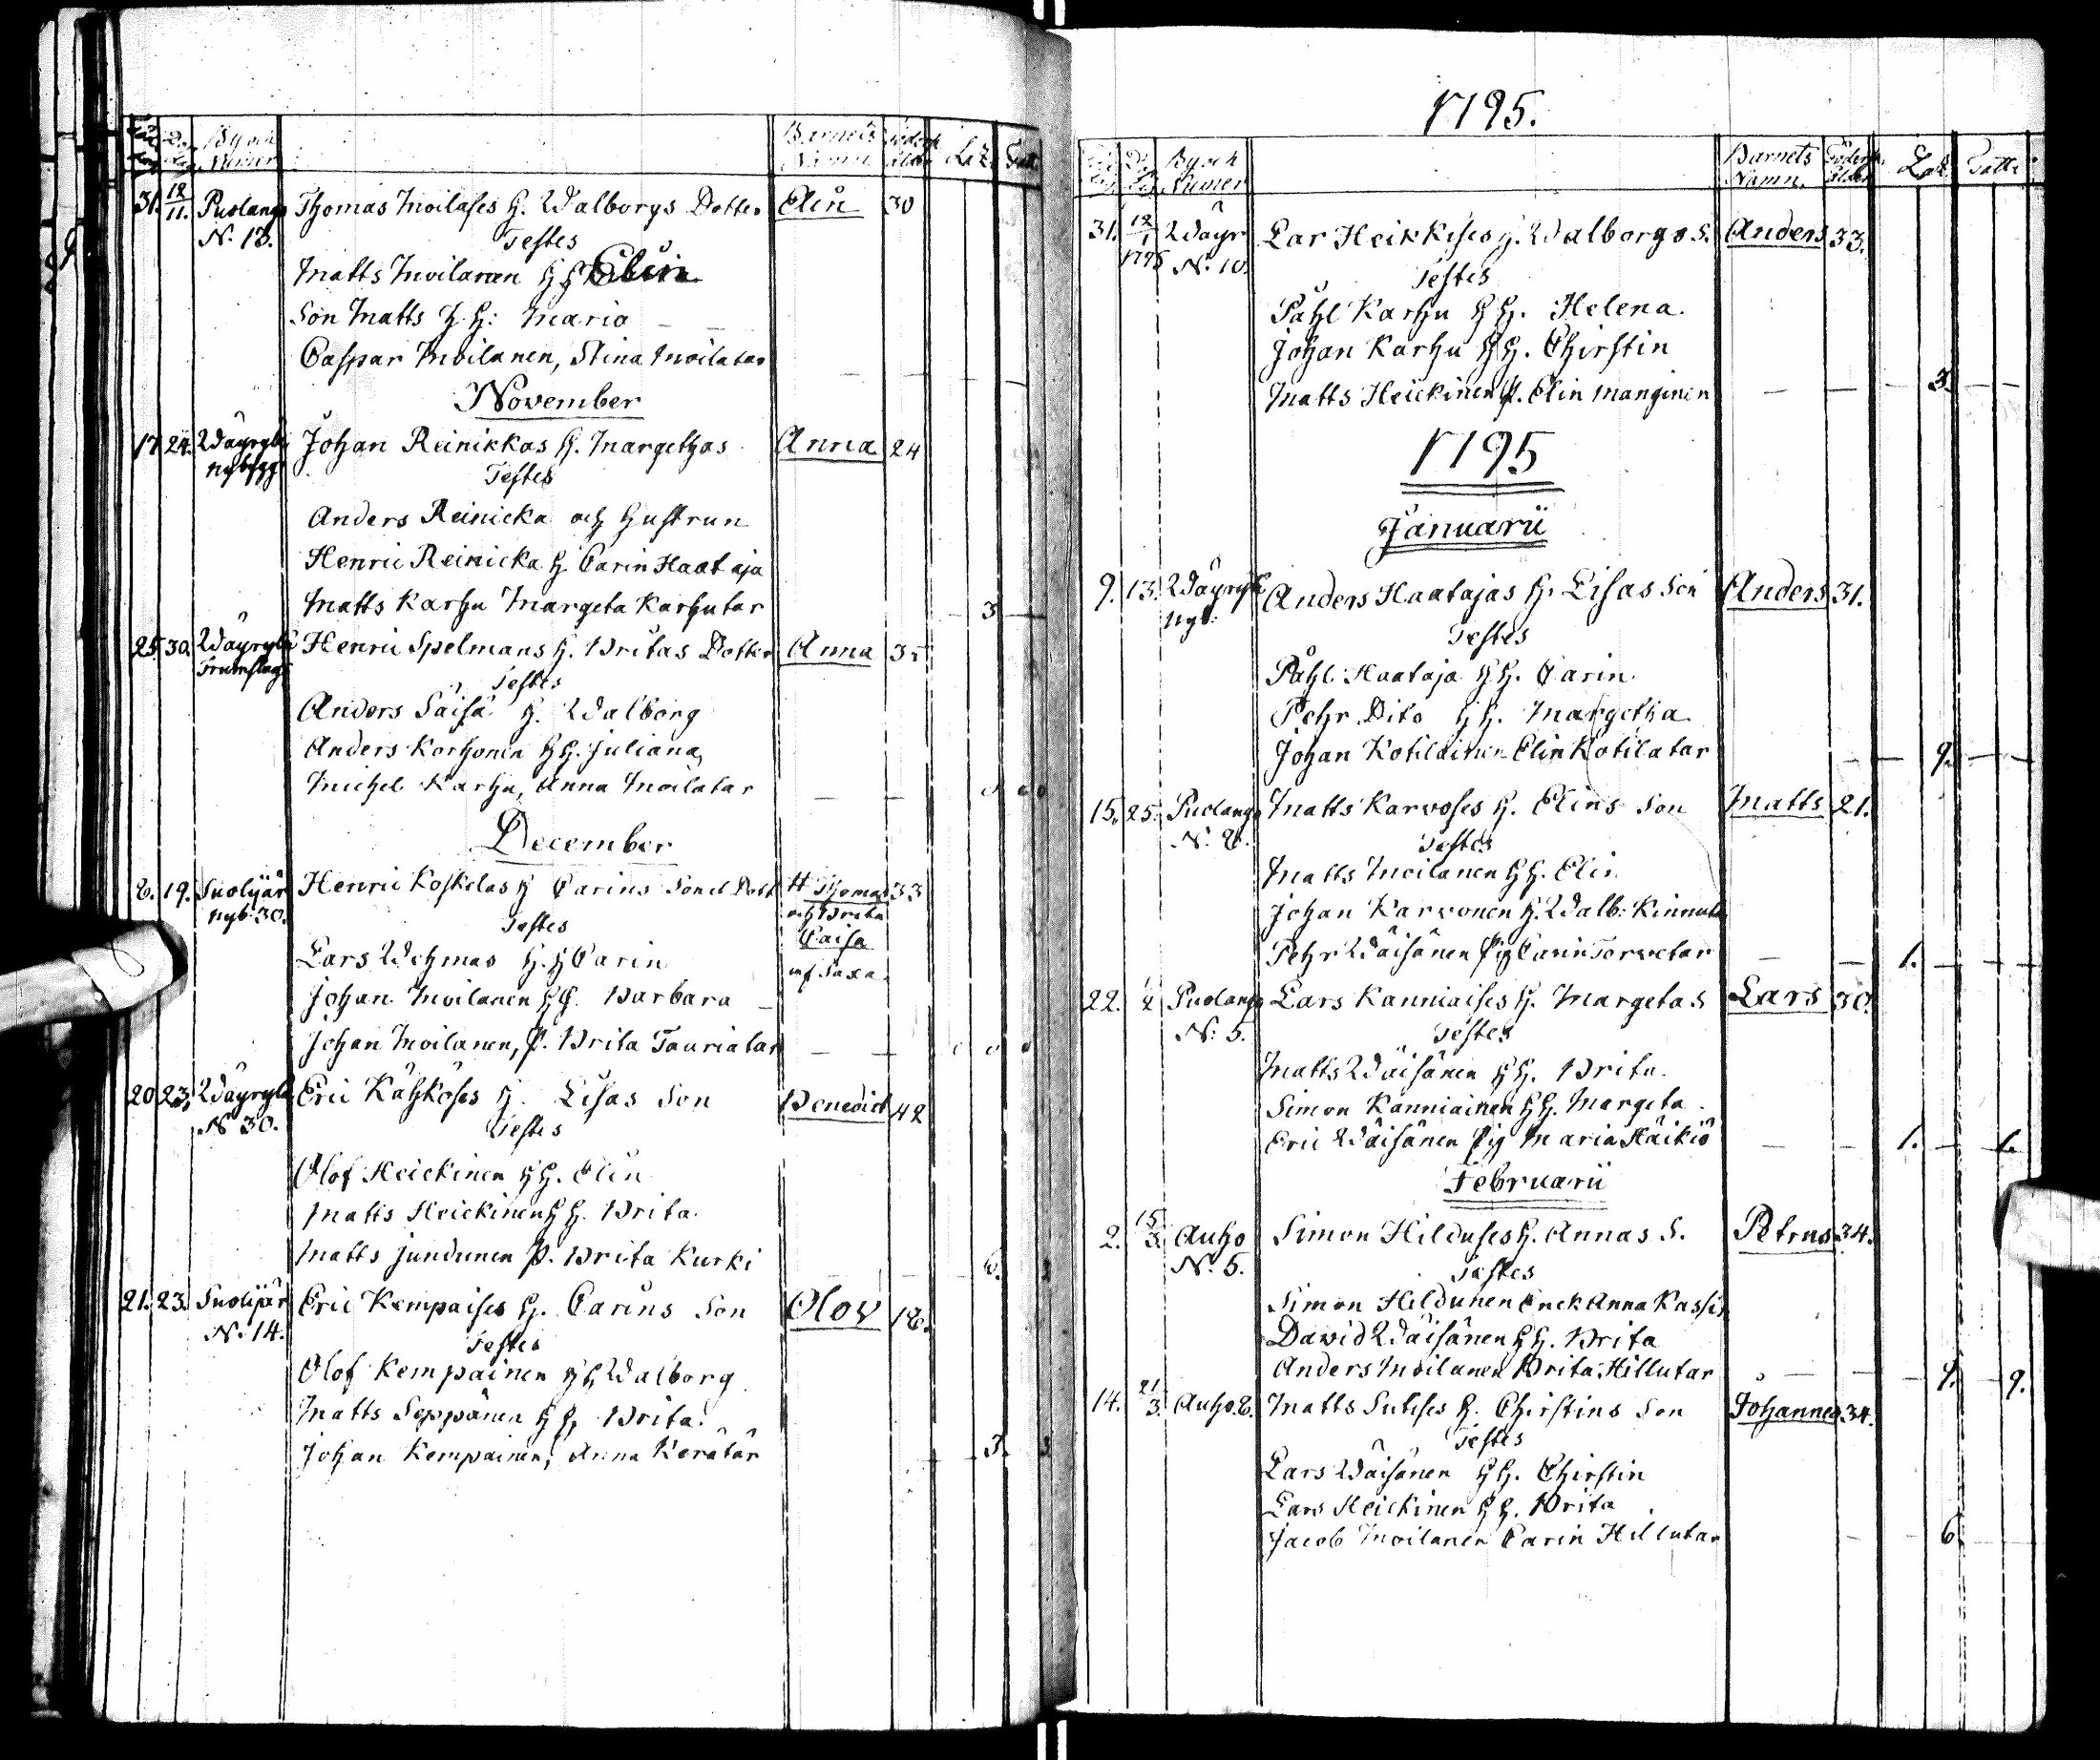 By och Barnets Föders Laz. Fatt.
Numer Namn ålder
31. 12/11. Puolango Thomas Moilases H. Walborgs Dotter Elin 30
N. 13. Testes
Matts Moilanen H H Elin
Son Matts H H: Maria
Caspar Moilanen, Stina Moilatar
November
17. 24. Wäyrylä Johan Reinikkas H. Margethas Anna 24
nybygg Testes
Anders Reinicka och Hustrun
Henric Reinicka H Carin Haataja
Matts Karhu Margeta Karhutar 3
25. 30. Wäyrylä Henric Spelmans H. Britas Dotter Anna 35
Trumslag Testes
Anders Säisä H. Walborg
Anders Korhonen H H. Juliana
Michel Karhu, Anna Moilatar
December
6. 19. Suolijär Henric Koskelas H Carins Son et Dott Thomas 33
nyb. 30. och Brita
Testes Caisa
Lars Wehmas H. H Carin
Johan Moilanen H H. Barbara
Johan Moilanen, P. Brita Tauriatar
20 23. Wäyrylä Eric Kähköses H. Lisas Son Benedict 42
N 30. Testes
Olof Heickinen H H. Elin
Matts Heickinen H H. Brita
Matts Jundunen P. Brita Kurki 6.
21. 23. Suolijär Eric Kempaises H. Carins Son Olov 18.
N. 14. Testes
Olof Kempainen H H Walborg
Matts Seppänen H H, Brita
Johan Kempainen, Anna Kerätär 3. 3
1795.
By och Barnets Föders Laz. Fatt.
Numer Namn. ålder
31. 12/1 Wäyr Lar Heikkises H. Walborgs S. Anders 33.
1795 N. 10. Testes
Påhl Karhu H H. Helena
Johan Karhu H H. Chirstin
Matts Heickinen P. Elin Manginen 3.
1795
Januarii
9. 13. Wäyrylä Anders Haatajas H. Lisas Son Anders 31.
nyb. Testes
Påhl Haataja H H. Carin
Pehr Dito H H. Margetha
Johan Kotilainen Elin Kotilatar 9.
15. 25. Puolango Matts Karvoses H. Elins Son Matts 21.
N. 8. Testes
Matts Moilanen H H. Elin
Johan Karvonen H. Walb: Kinnuta
Pehr Wäisänen Pig Carin Torvetar 1.
22. 1/2 Puolango Lars Kanniaises H. Margetas Lars 30.
N: 5. Testes
Matts Wäisänen H H. Brita
Simon Kanniainen H H. Margeta
Eric Wäisänen Pig Maria Häikiö 1. 1.
Februarii
2. 15/3. Auho Simon Hilduses H. Annas S. Petrus 34.
N. 5. Testes
Simon Hildunen Enck Anna Kassin
David Wäisänen H H. Brita
Anders Moilanen Brita Hillutar 9. 9.
14. 21/3. Auho. 8. Matts Sutises H. Chirstins Son Johannes 34.
Testes
Lars Wäisänen H H. Chirstin
Lars Heickinen H H. Brita
Jacob Moilanen Carin Hillutar 6.